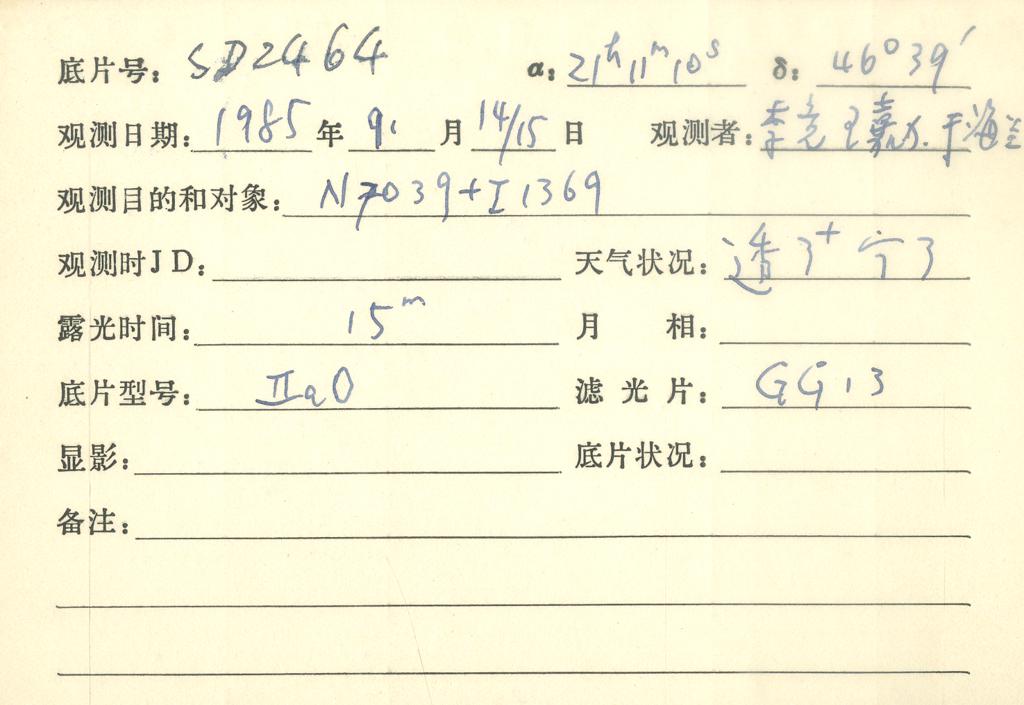 底片号: SD2464 α: 21h11m10s δ: 46°39′
观测日期: 1985年9月14/15日 观测者: 李竞 王嘉 于海
观测目的和对象: N7039+I1369
观测时JD: 天气状况: 透3+宁3
露光时间: 15m 月相:
底片型号: IIaO 滤光片: GG13
显影: 底片状况:
备注: